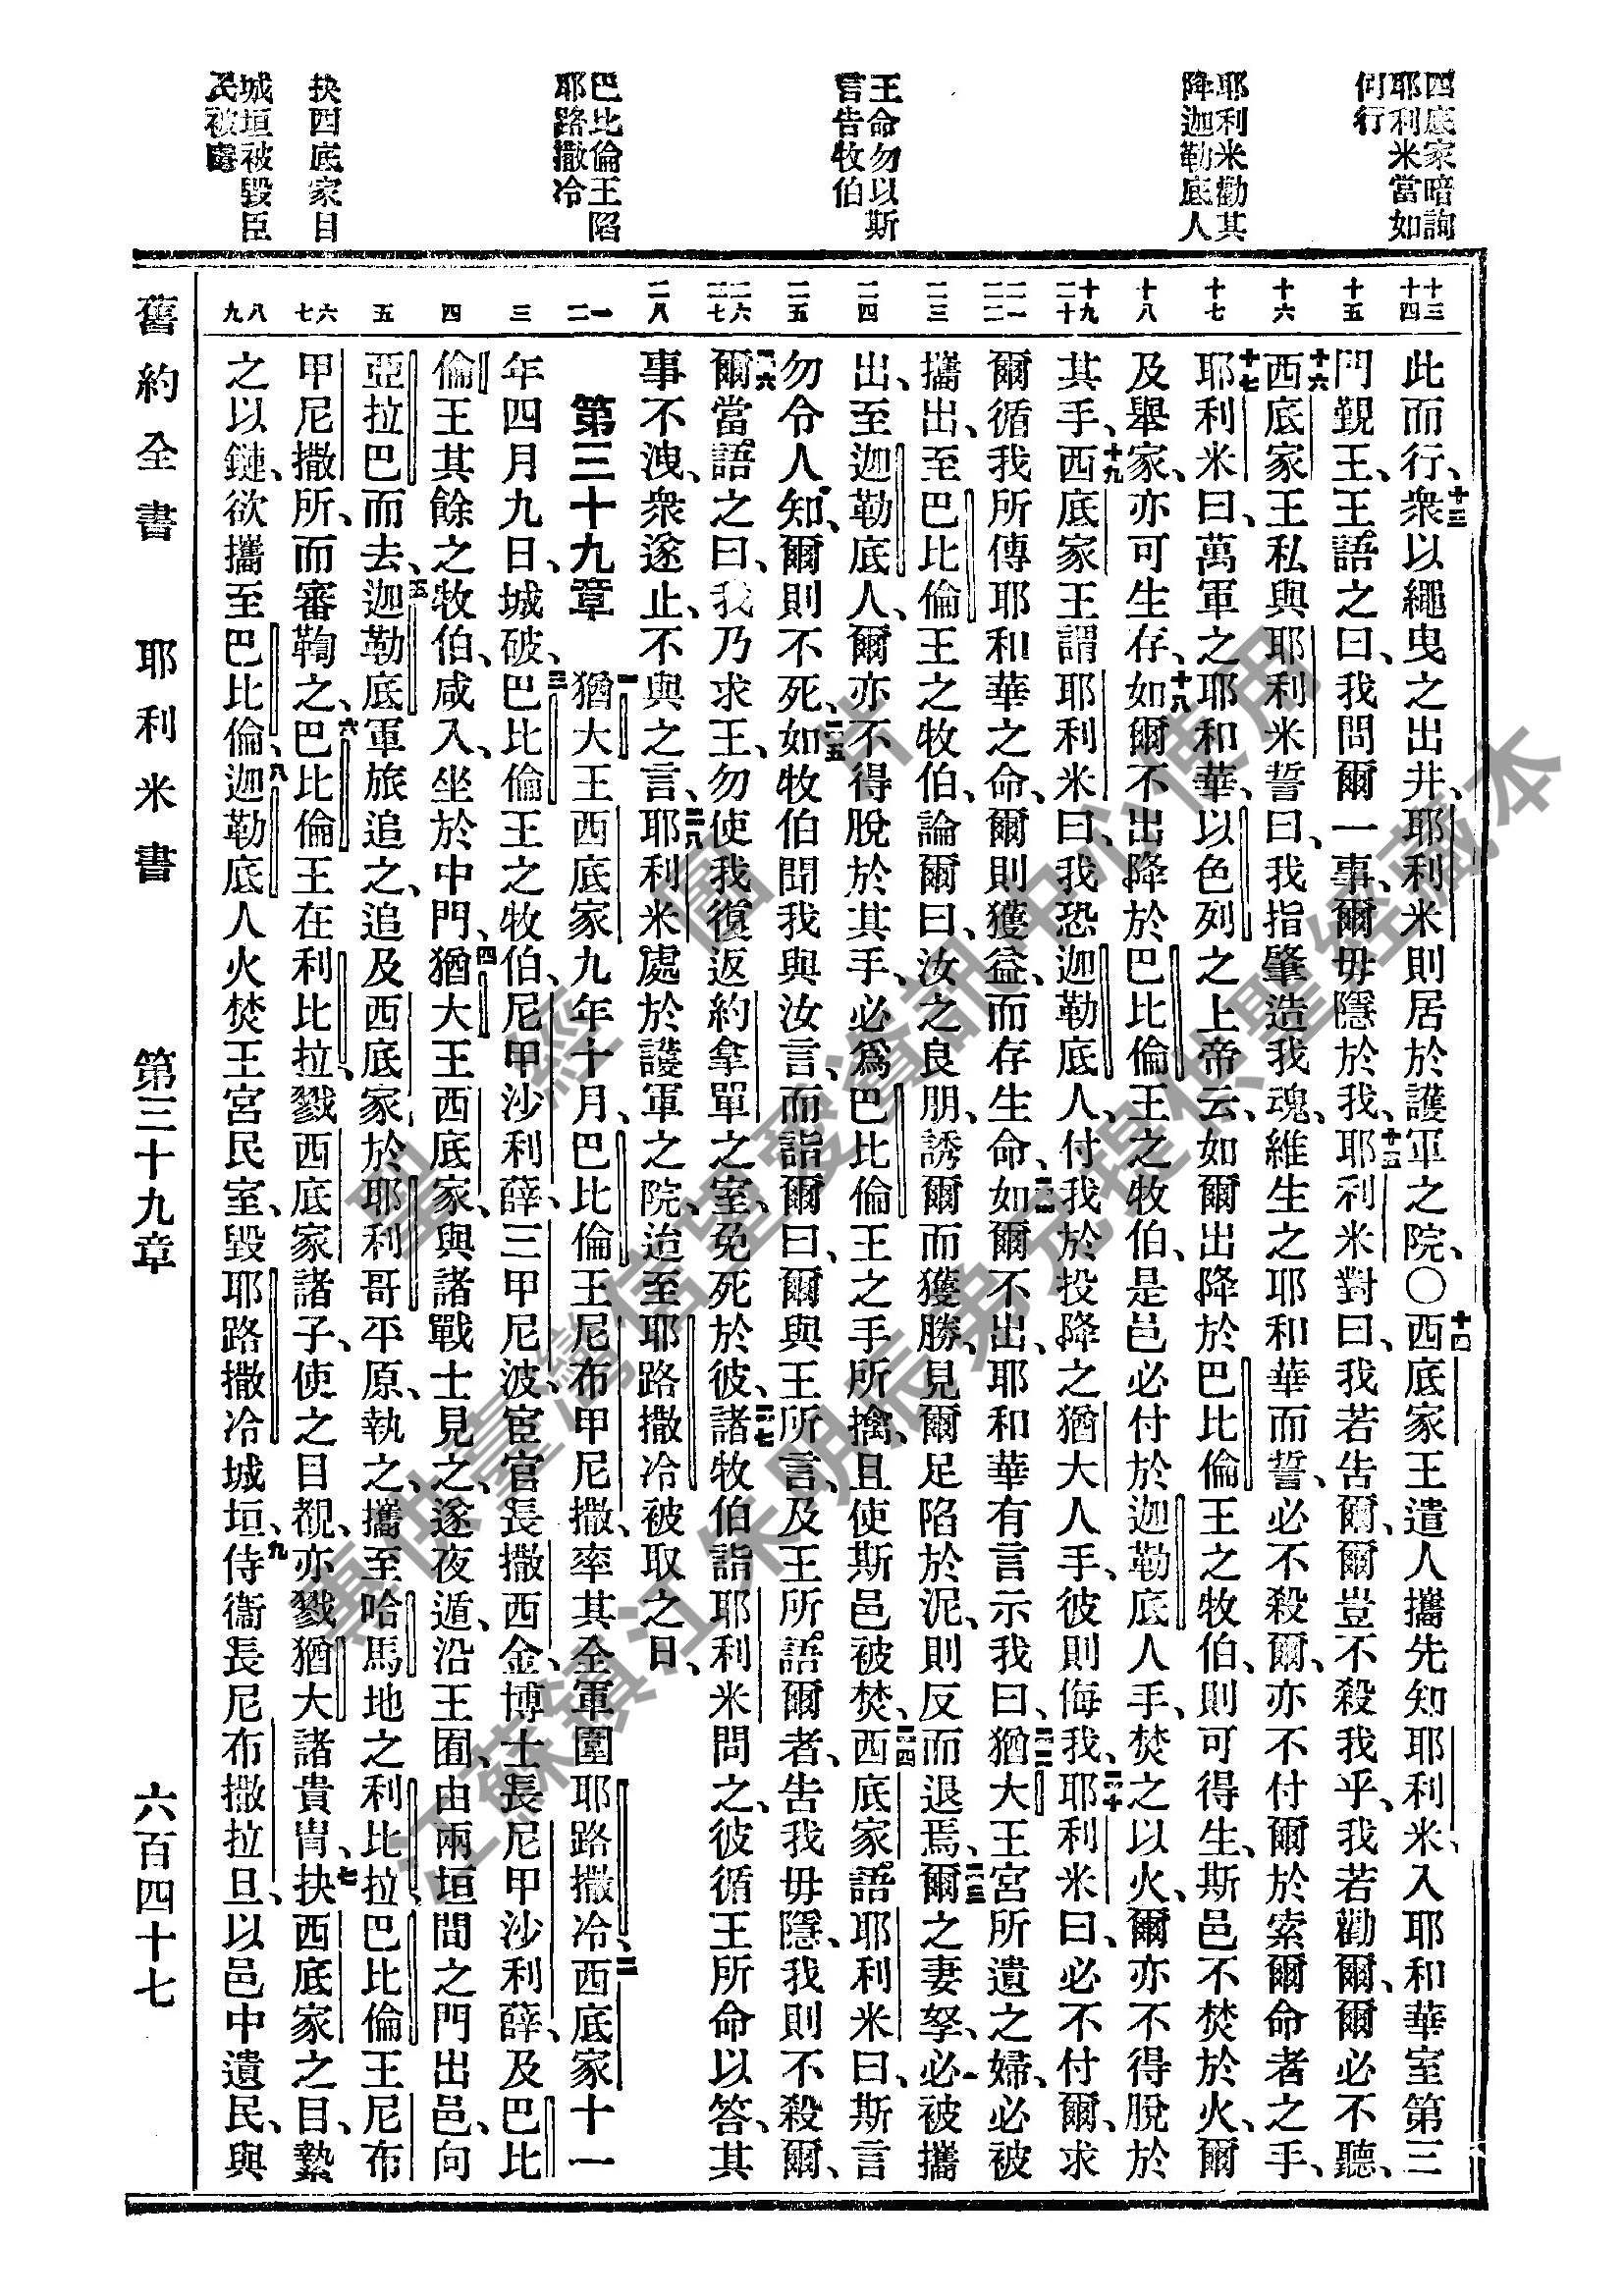 西底家暗詢
耶利米當如
何行
耶利米勸其
降迦勒底人
王命勿以斯
言告牧伯
巴比倫王陷
耶路撒冷
抉西底家目
城垣被毀臣
民被虜
十三
十四
十五
十六
十七
十八
十九
二十
二一
二二
二三
二四
二五
二六
二七
二八
一
二
三
四
五
六
七
八
九
此而行、十三衆以繩曳之出井、耶利米則居於護軍之院、〇十四西底家王遣人攜先知耶利米、入耶和華室第三
門覲王、王語之曰、我問爾一事、爾毋隱於我、十五耶利米對曰、我若告爾、爾豈不殺我乎、我若勸爾、爾必不聽、
十六西底家王私與耶利米誓曰、我指肇造我魂、維生之耶和華而誓、必不殺爾、亦不付爾於索爾命者之手、
十七耶利米曰、萬軍之耶和華、以色列之上帝云、如爾出降於巴比倫王之牧伯、則可得生、斯邑不焚於火、爾
及舉家、亦可生存、十八如爾不出降於巴比倫王之牧伯、是邑必付於迦勒底人手、焚之以火、爾亦不得脫於
其手、十九西底家王謂耶利米曰、我恐迦勒底人、付我於投降之猶大人手、彼則侮我、二十耶利米曰、必不付爾、求
爾循我所傳耶和華之命、爾則獲益、而存生命、二一如爾不出、耶和華有言示我曰、二二猶大王宮所遺之婦、必被
攜出、至巴比倫王之牧伯、論爾曰、汝之良朋、誘爾而獲勝、見爾足陷於泥、則反而退焉、二三爾之妻孥、必被攜
出、至迦勒底人、爾亦不得脫於其手、必爲巴比倫王之手所擒、且使斯邑被焚、二四西底家語耶利米曰、斯言
勿令人知、爾則不死、二五如牧伯聞我與汝言、而詣爾曰、爾與王所言、及王所語爾者、告我毋隱、我則不殺爾、
二六爾當語之曰、我乃求王、勿使我復返約拿單之室、免死於彼、二七諸牧伯詣耶利米問之、彼循王所命以答、其
事不洩、衆遂止、不與之言、二八耶利米處於護軍之院、迨至耶路撒冷被取之日、
第三十九章 一猶大王西底家九年十月、巴比倫王尼布甲尼撒、率其全軍圍耶路撒冷、二西底家十一
年四月九日、城破、三巴比倫王之牧伯、尼甲沙利薛、三甲尼波、宦官長撒西金、博士長尼甲沙利薛、及巴比
倫王其餘之牧伯、咸入、坐於中門、四猶大王西底家、與諸戰士見之、遂夜遁、沿王囿、由兩垣間之門出邑、向
亞拉巴而去、五迦勒底軍旅追之、追及西底家於耶利哥平原、執之、攜至哈馬地之利比拉、巴比倫王尼布
甲尼撒所、而審鞫之、六巴比倫王在利比拉、戮西底家諸子、使之目覩、亦戮猶大諸貴冑、七抉西底家之目、縶
之以鏈、欲攜至巴比倫、八迦勒底人火焚王宮民室、毀耶路撒冷城垣、九侍衞長尼布撒拉旦、以邑中遺民、與
舊約全書 耶利米書 第三十九章 六百四十七
聖經圖片
專供臺灣信望愛資訊中心使用
江蘇鎮江朱明辰弟兄提供聖經藏本